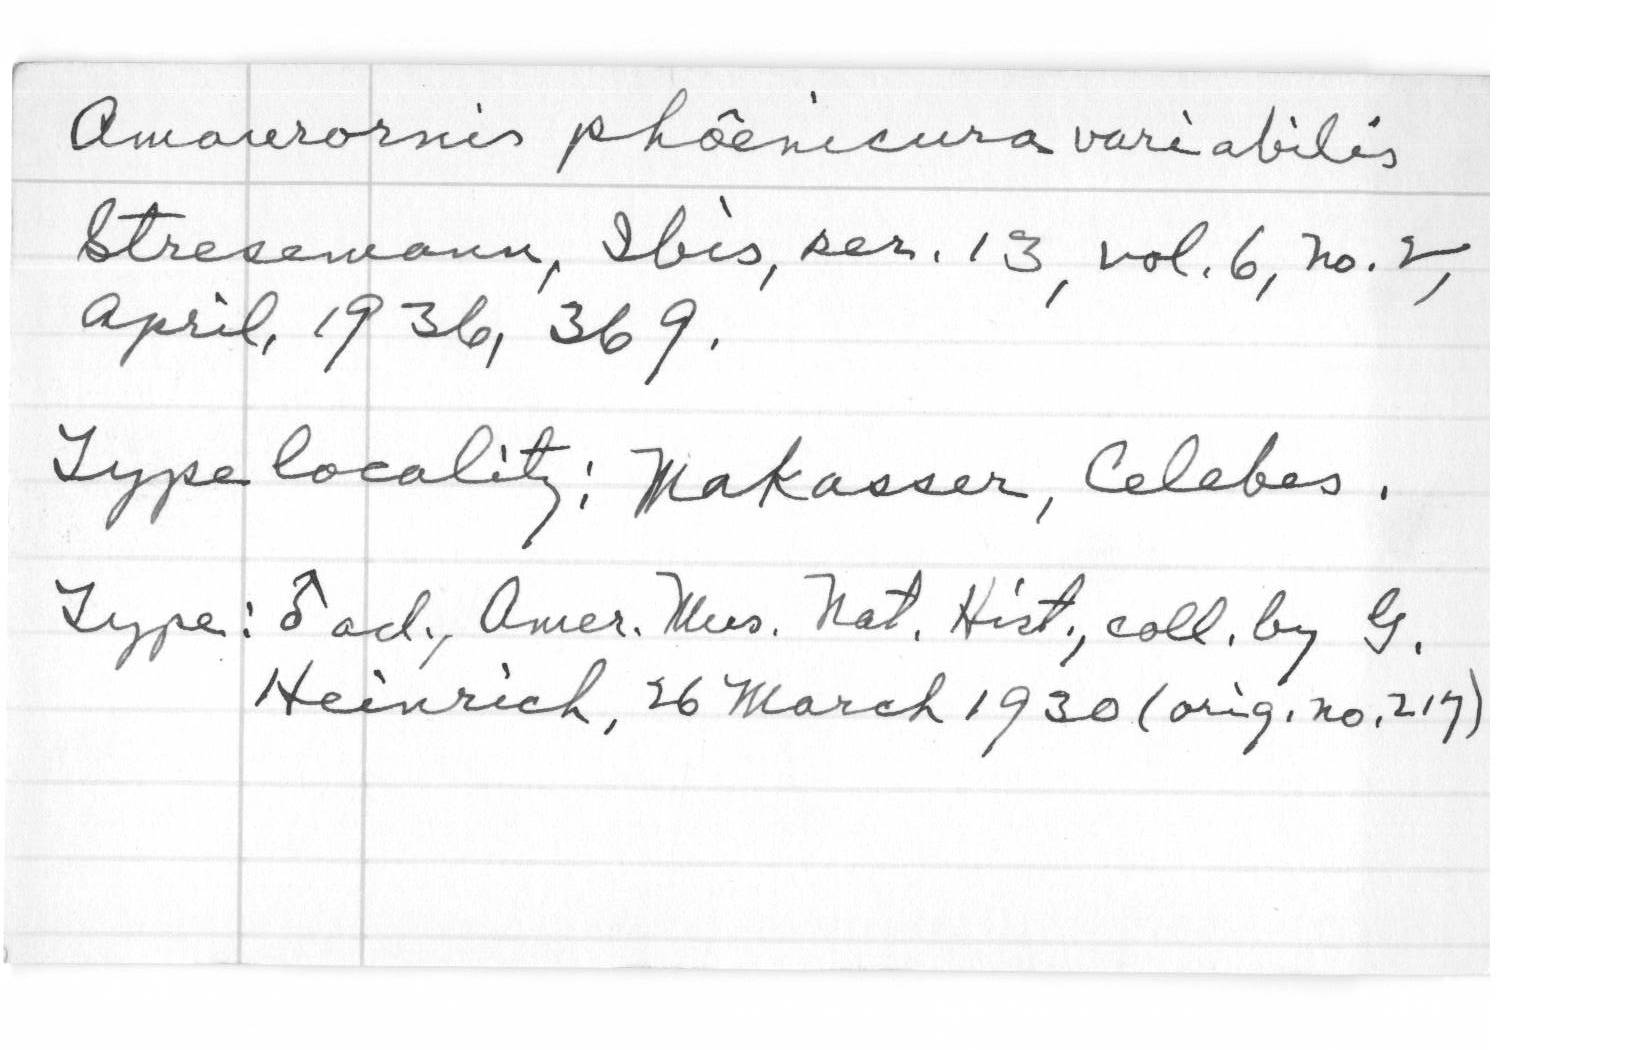 Amaurornis phôenicura variabilis
Stresemann, Ibis, ser. 13, vol. 6, no. 2,
April, 1936, 369.
Type locality: Makasser, Celebes.
Type: ♂ ad., Amer. Mus. Nat. Hist., coll. by G.
Heinrich, 26 March 1930 (orig. no. 217)